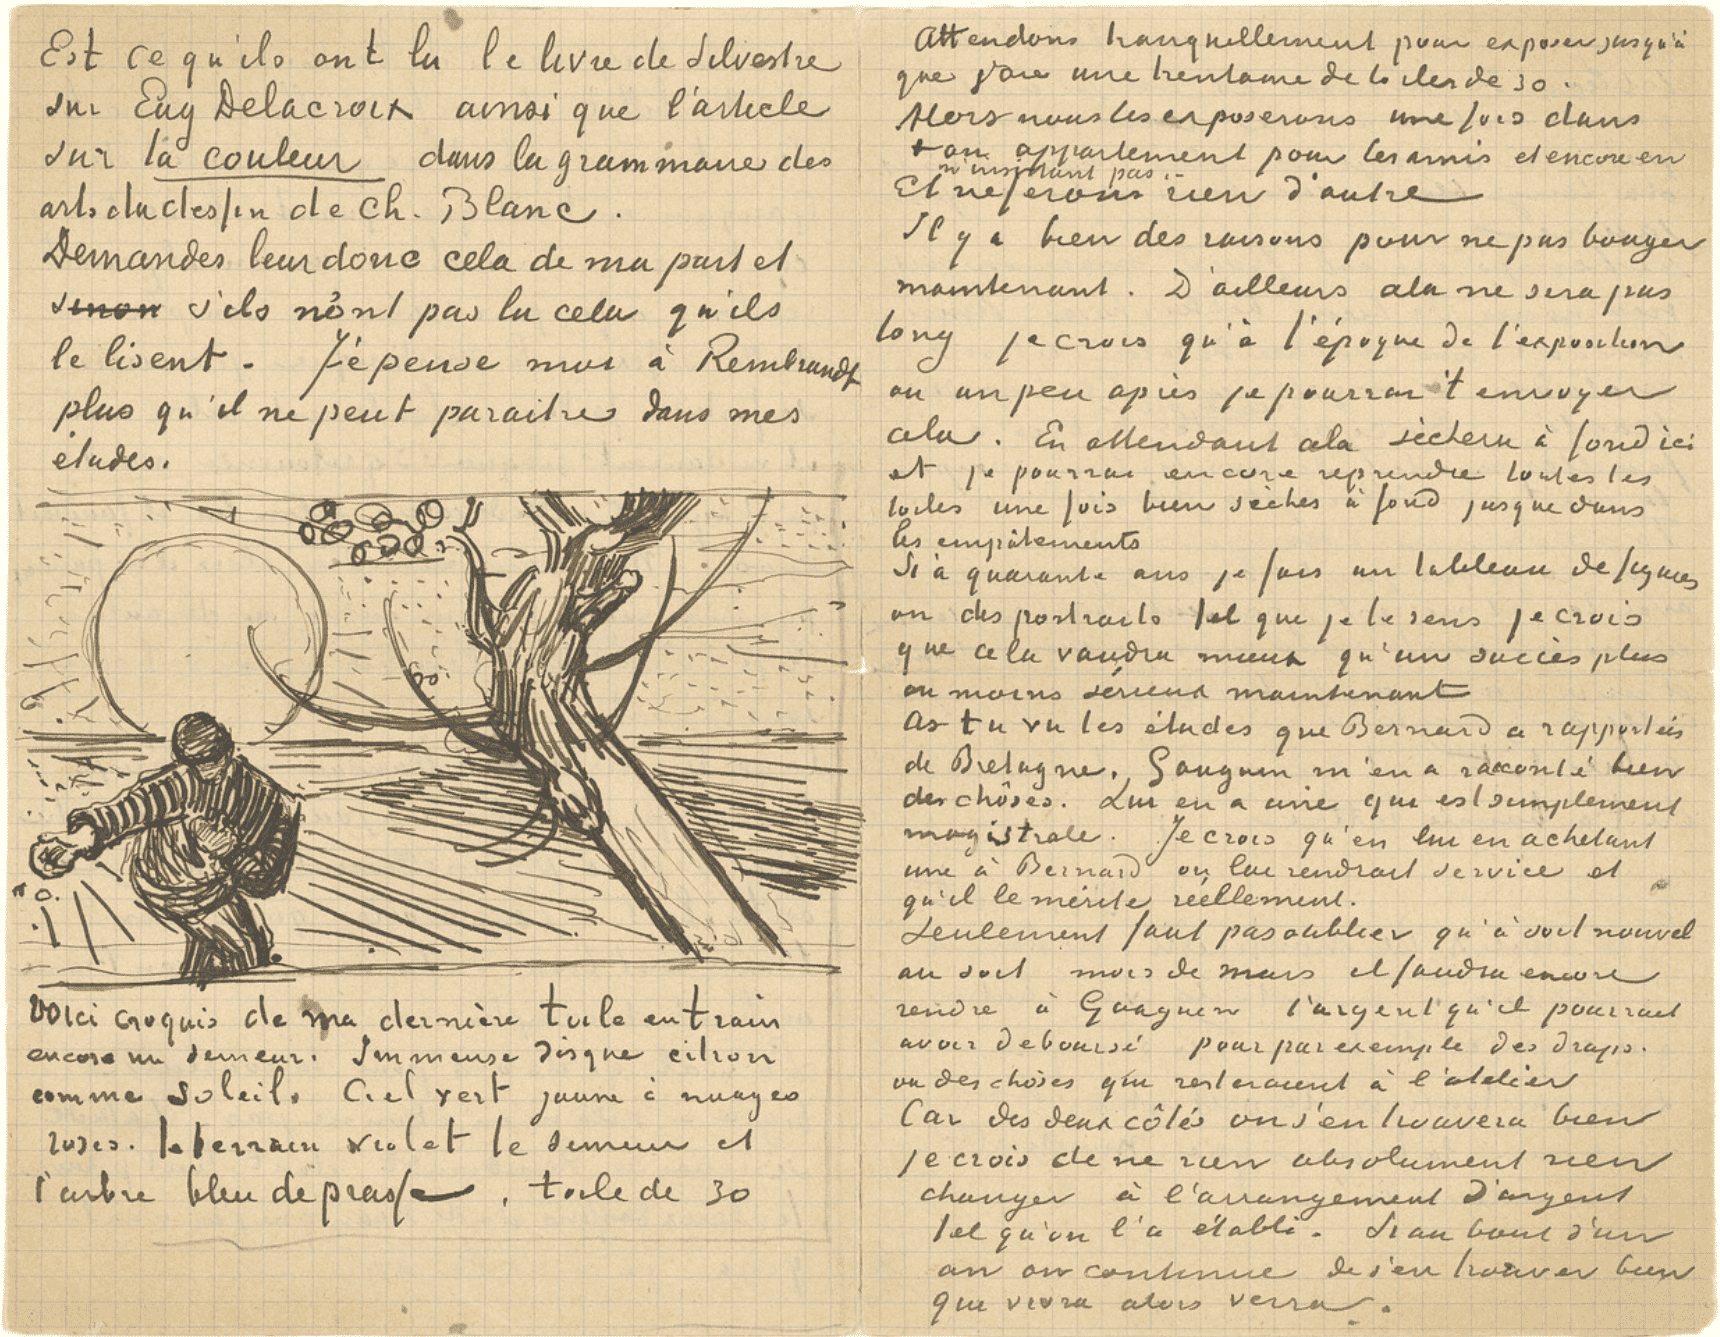 Est ce qu'ils ont lu le livre de Silvestre
sur Eug Delacroix ainsi que l'article
sur la couleur dans la grammaire des
arts du dessin de Ch. Blanc.
Demandes leur donc cela de ma part et
sinon s'ils n'ont pas lu cela qu'ils
le lisent. J'é pense moi à Rembrandt
plus qu'il ne peut paraitre dans mes
études.
Voici croquis de ma dernière toile en train
encore un semeur. Immense disque citron
comme soleil. Ciel vert jaune à nuages
roses. le terrain violet le semeur et
l'arbre bleu de prusse. toile de 30
Attendons tranquillement pour exposer jusqu'à
que j'aie une trentaine de toiles de 30.
Alors nous les exposerons une fois dans
ton appartement pour les amis et encore en
n'insistant pas..
Et ne ferons rien d'autre
Il y a bien des raisons pour ne pas bouger
maintenant. D'ailleurs cela ne sera pas
long je crois qu'à l'époque de l'exposition
ou un peu après je pourrai t'envoyer
cela. En attendant cela sèchera à fond ici
et je pourrai encore reprendre toutes les
toiles une fois bien sèches à fond jusque dans
les empâtements
Si à quarante ans je fais un tableau de figures
ou des portraits tel que je le sens je crois
que cela vaudra mieux qu'un succès plus
ou moins sérieux maintenant
As tu vu les études que Bernard a rapportées
de Bretagne. Gauguin m'en a raconté bien
des chôses. Lui en a une qui est simplement
magistrale. Je crois qu'en lui en achetant
une à Bernard on lui rendrait service et
qu'il le mérite réellement.
Seulement faut pas oublier qu'à soit nouvel
an soit mois de mars il faudra encore
rendre à Gauguin l'argent qu'il pourrait
avoir deboursé pour par exemple des draps.
ou des choses qui resteraient à l'atelier
Car des deux côtés on s'en trouvera bien
je crois de ne rien absolument rien
changer à l'arrangement d'argent
tel qu'on l'a établi. Si au bout d'un
an on continue de s'en trouver bien
que vivra alors verra.